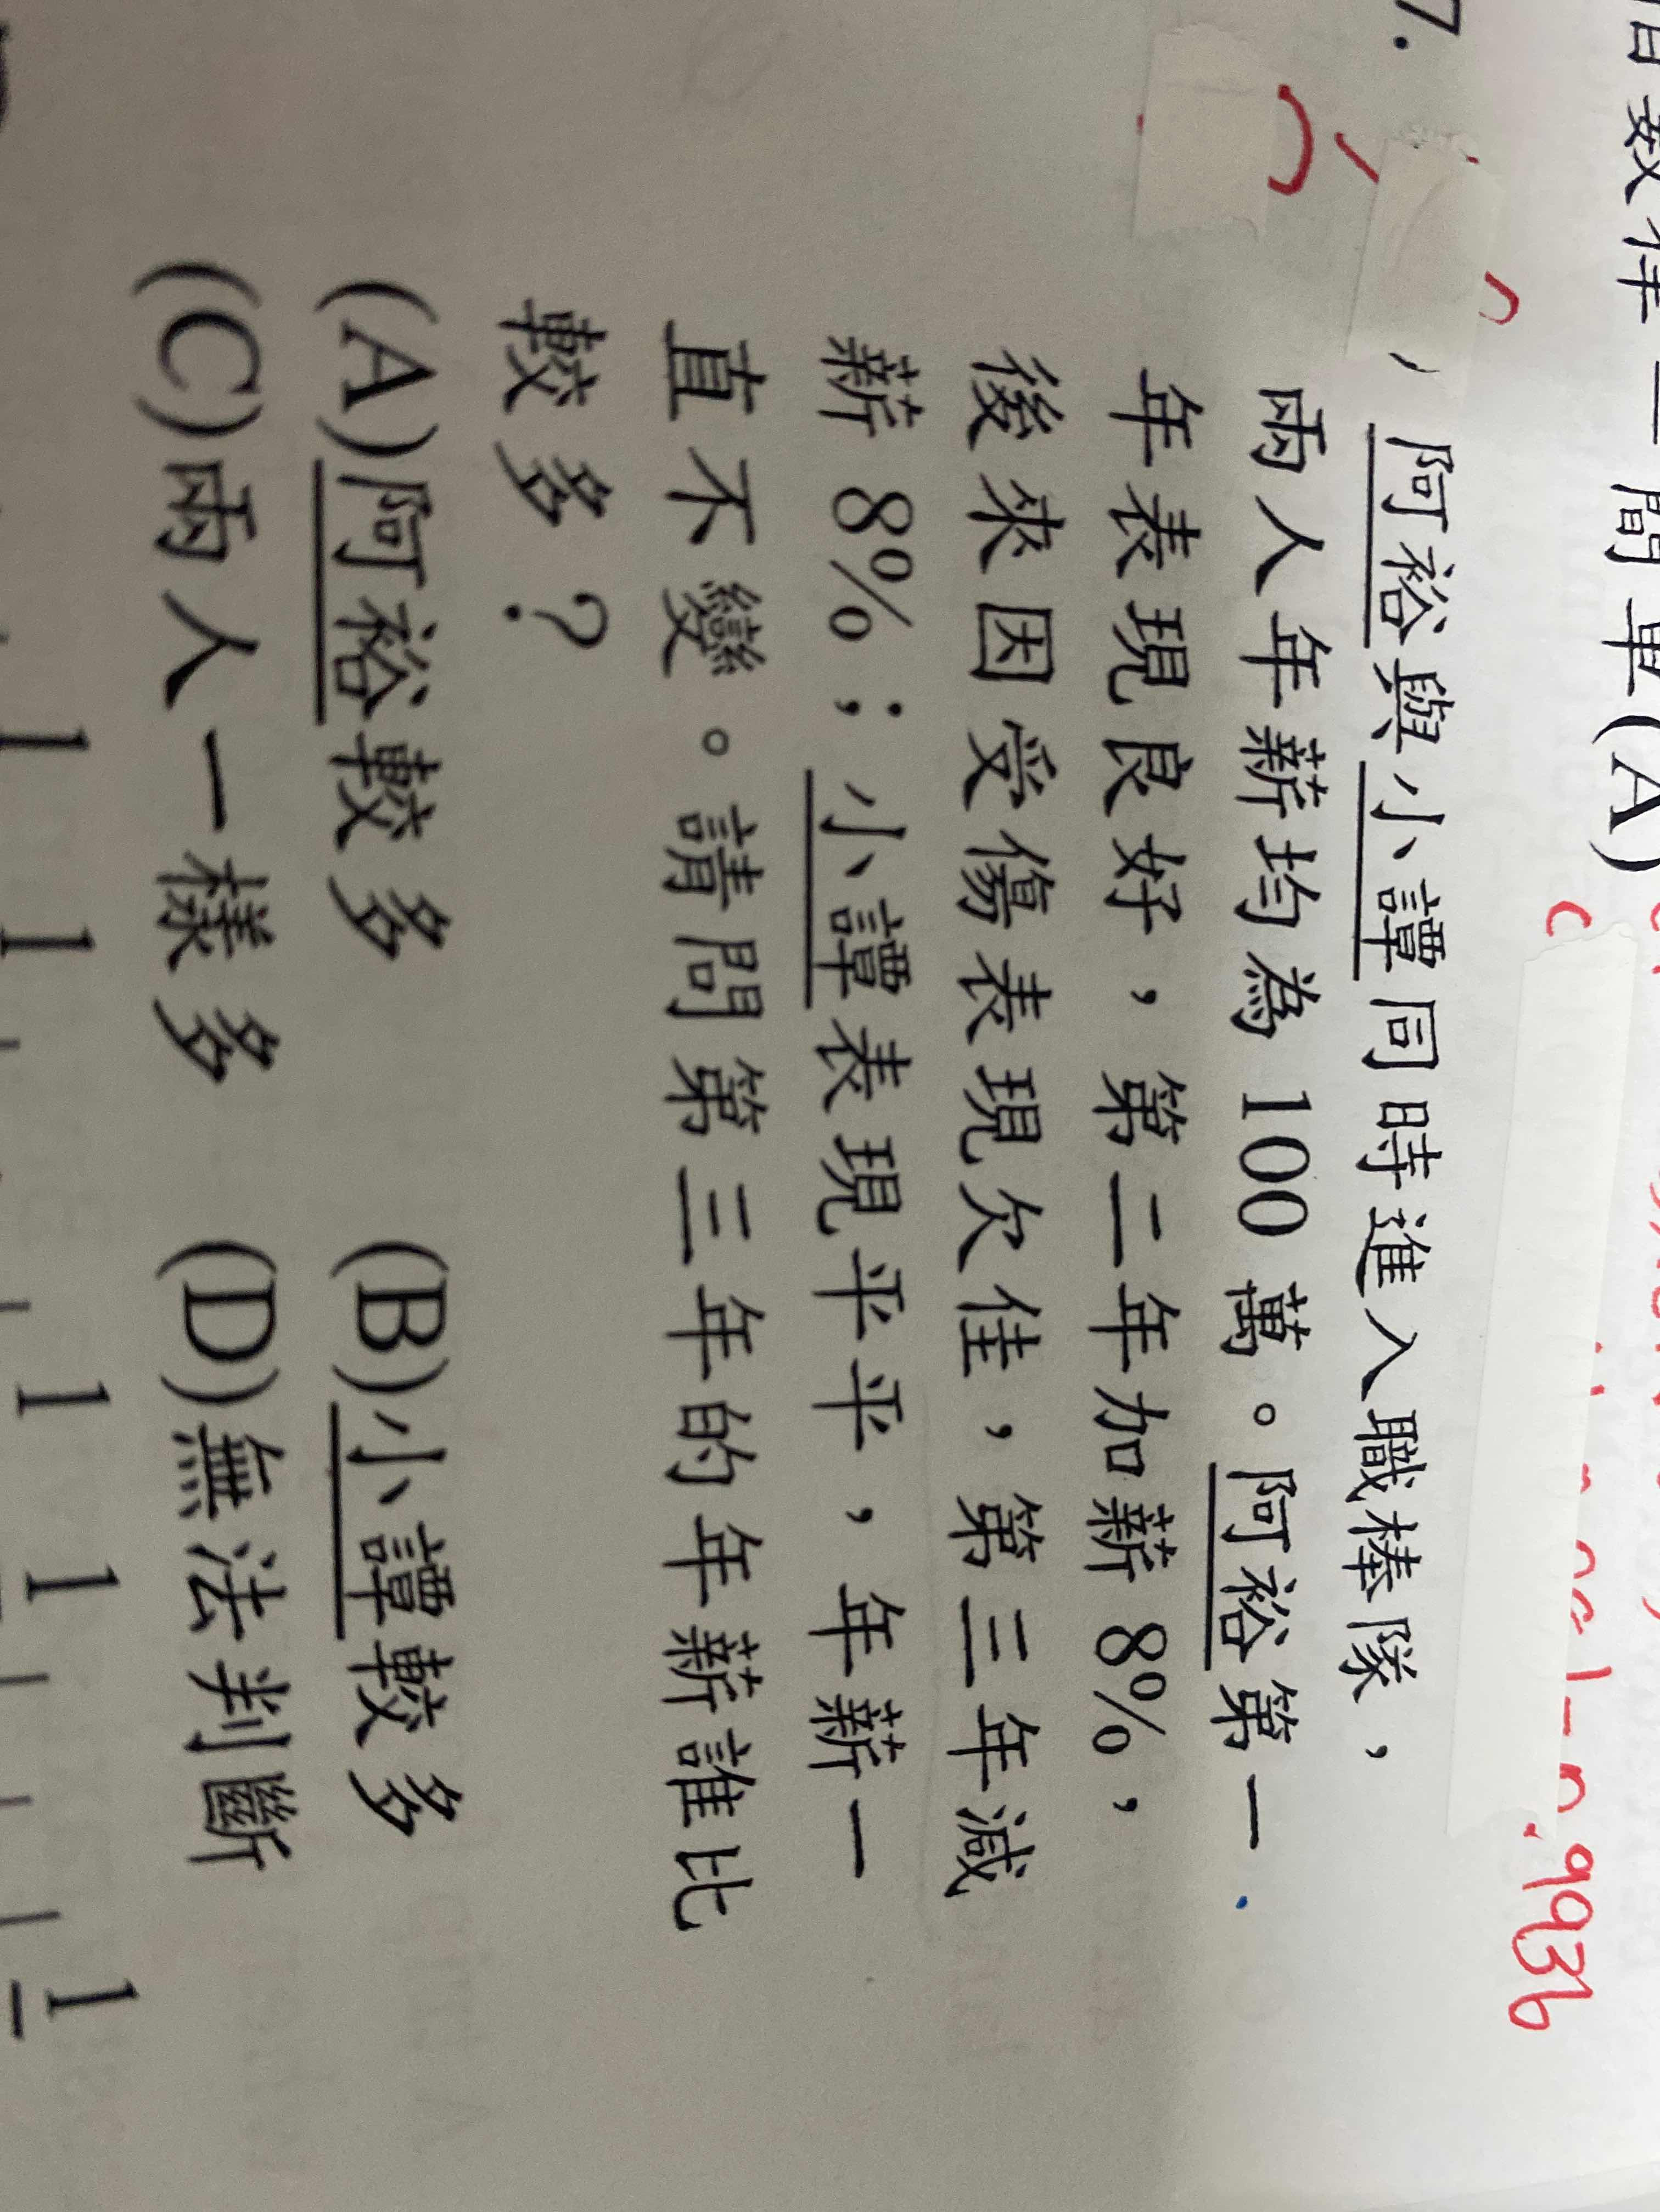 一間單(A)
.9936
7.
，阿裕與小譚同時進入職棒隊，
兩人年薪均為 100 萬。阿裕第一
年表現良好，第二年加薪 8%，
後來因受傷表現欠佳，第三年減
薪 8%；小譚表現平平，年薪一
直不變。請問第三年的年薪誰比
較多？
(A)阿裕較多 (B)小譚較多
(C)兩人一樣多 (D)無法判斷
1 1 1 1 1